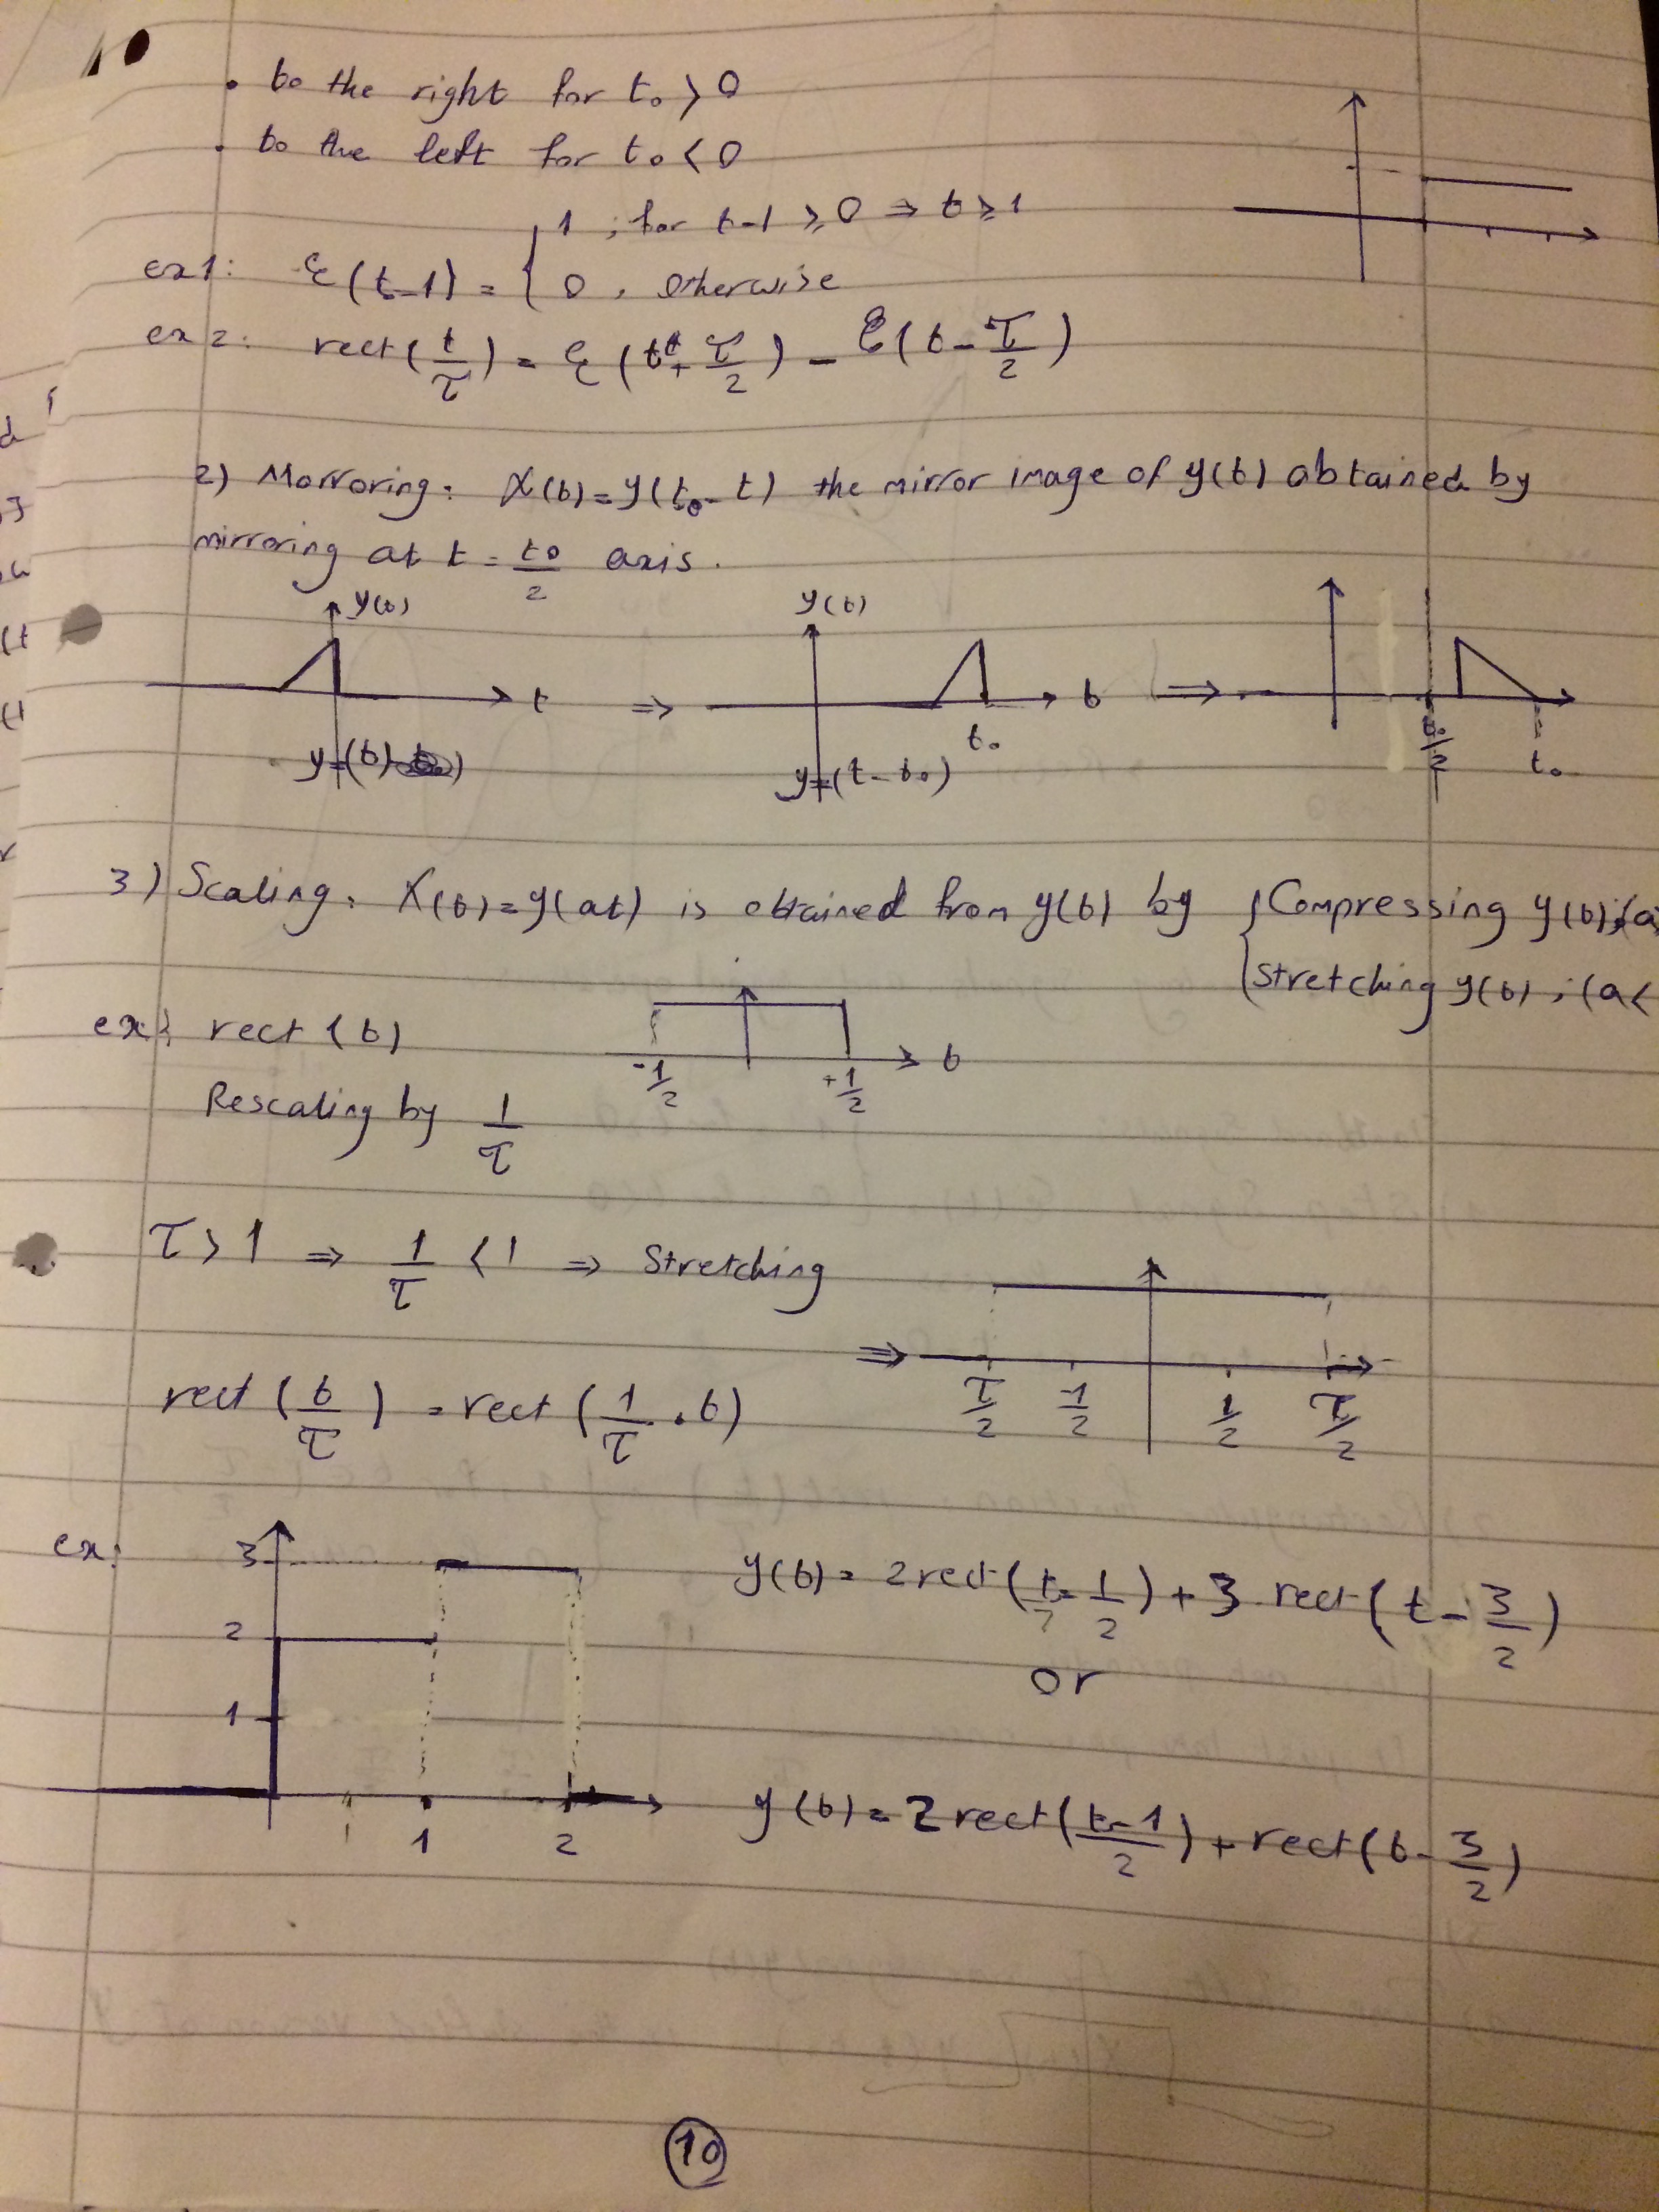 • to the right for t₀ > 0
• to the left for t₀ < 0
1 ; for t-1 ≥ 0 ⇒ t ≥ 1
ex1: ε(t-1) = { 0 , otherwise
ex2: rect(t/τ) = ε(t + τ/2) - ε(t - τ/2)
2) Morroring: X(t) = y(t₀ - t) the mirror image of y(t) obtained by
mirroring at t = t₀/2 axis.
y(t) y(t)
t ⇒ t ⇒
t₀ t₀/2 t₀
y(t) y(t - t₀)
3) Scaling: X(t) = y(at) is obtained from y(t) by { Compressing y(t) ; (a
Stretching y(t) ; (a <
ex: rect(t) t
-1/2 +1/2
Rescaling by 1/τ
τ > 1 ⇒ 1/τ < 1 ⇒ Stretching
⇒
rect(t/τ) = rect(1/τ . t) τ/2 -1/2 1/2 τ/2
ex: 3 y(t) = 2 rect(t - 1/2) + 3 rect(t - 3/2)
2 or
1
y(t) = 2 rect((t-1)/2) + rect(t - 3/2)
1 2
10